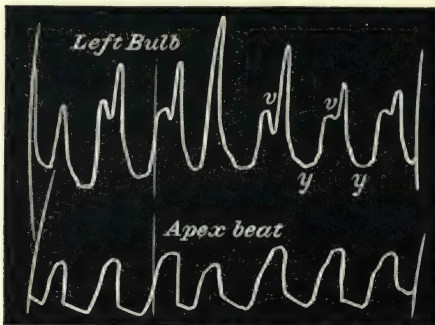 Left Bulb
v v
y y
Apex beat